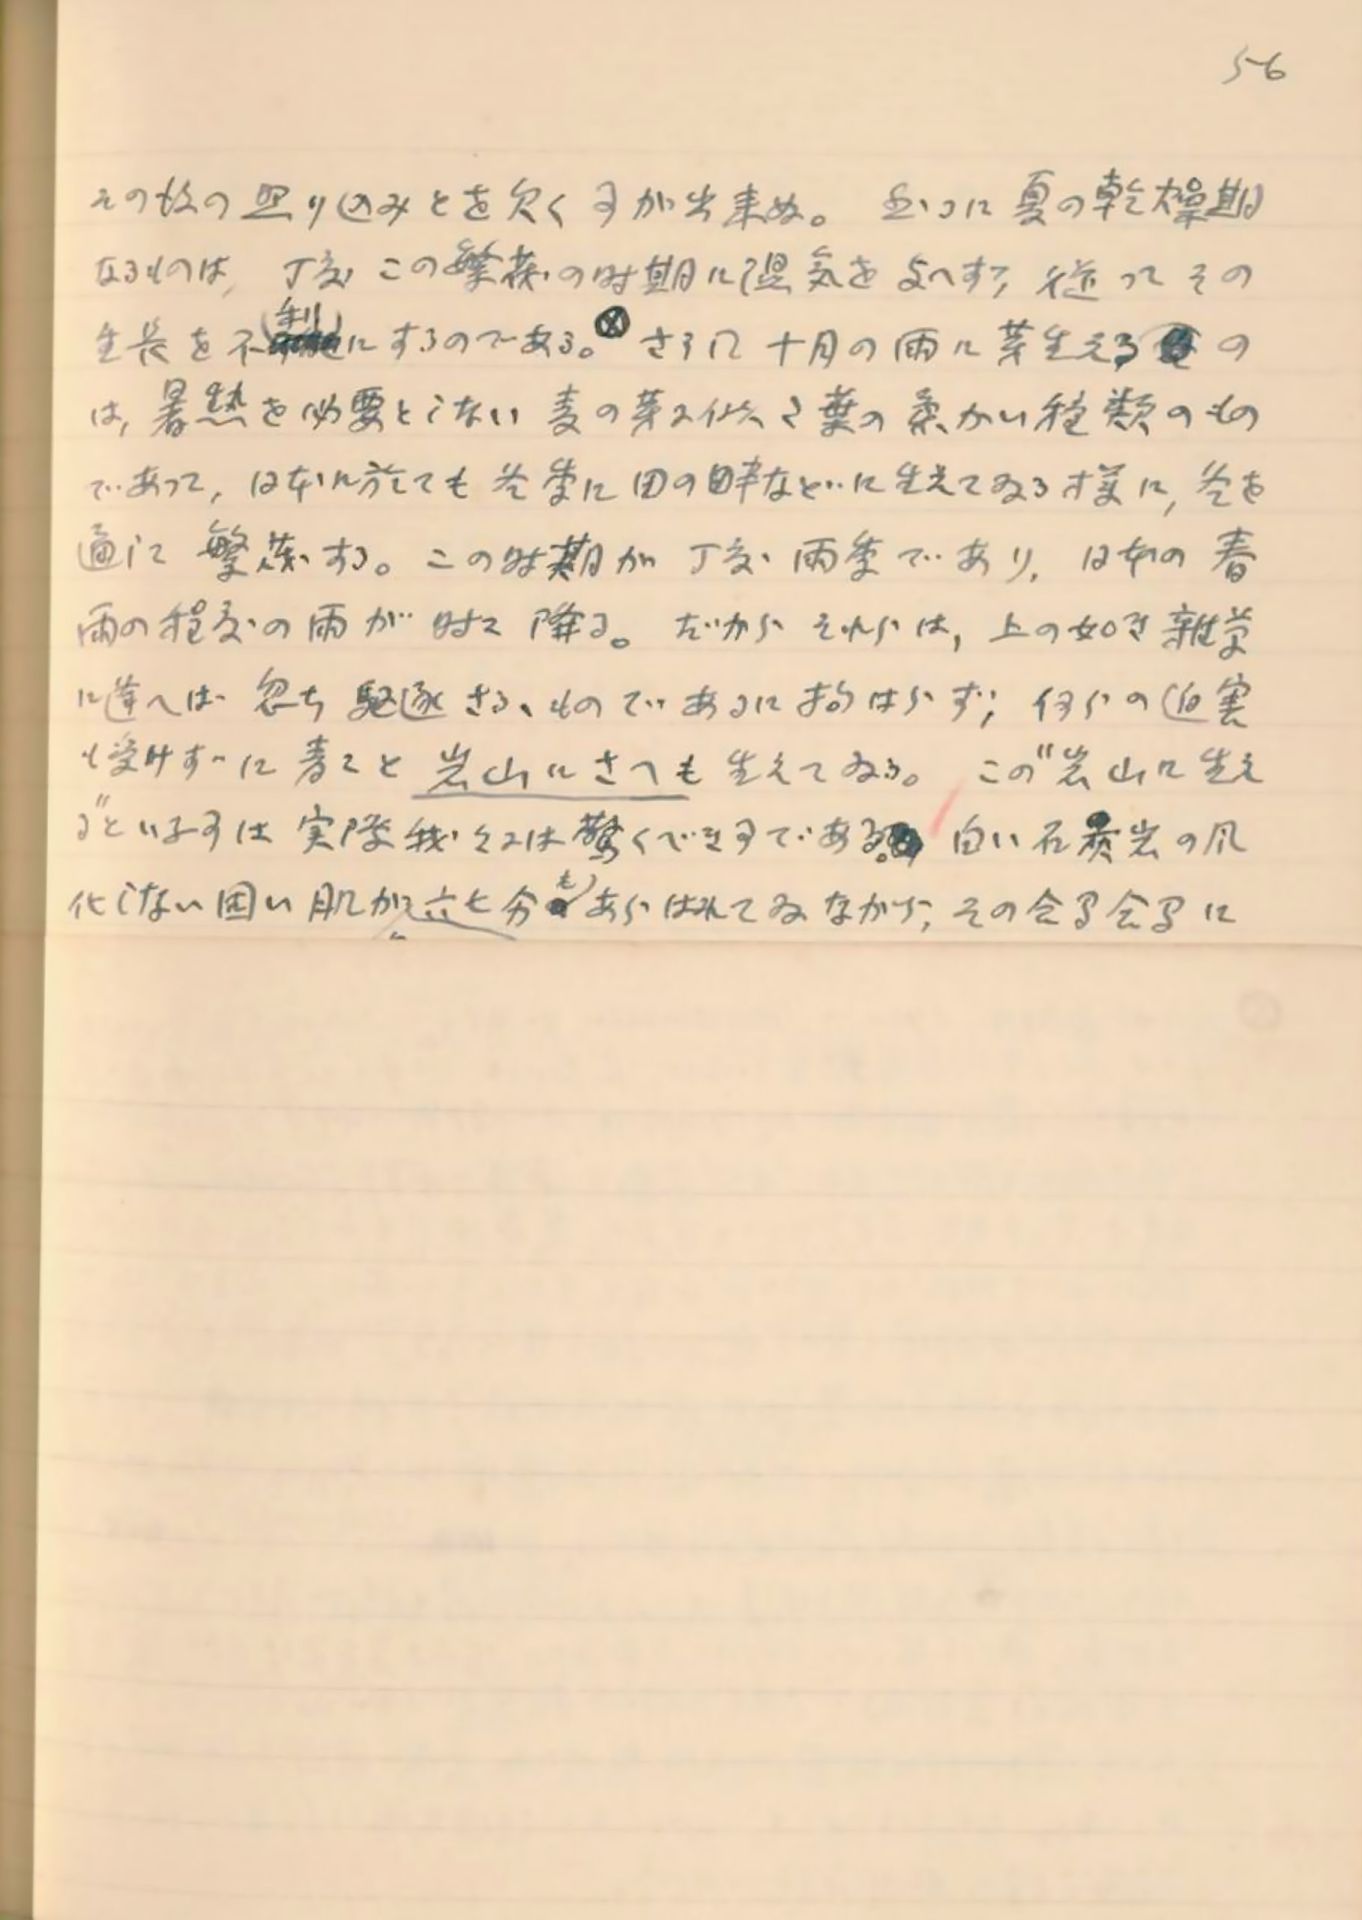 56
その故の照り込みとを欠く事が出来ぬ。 然るに夏の乾燥期
なるものは, 丁度この繁茂の時期に湿気を与へず, 従ってその
生長を不利にするのである。⊗ さらに十月の雨に芽生えるの
は, 暑熱を必要としない麦の芽に似た葉の柔かい種類のもの
であって, 日本に於ても冬季に田の畔などに生えてゐる様に, 冬を
通じて繁茂する。この時期が丁度雨季であり, 日本の春
雨の程度の雨が時々降る。だからそれらは, 上の如き雑草
に逢へば忽ち駆逐さるゝものであるに拘はらず, 何らの迫害
も受けずに青々と岩山にさへも生えてゐる。 この"岩山に生え
る"といふ事は実際我々には驚くべき事である。白い石炭岩の風
化しない固い肌が六七分もあらはれてゐながら, その合間合間に